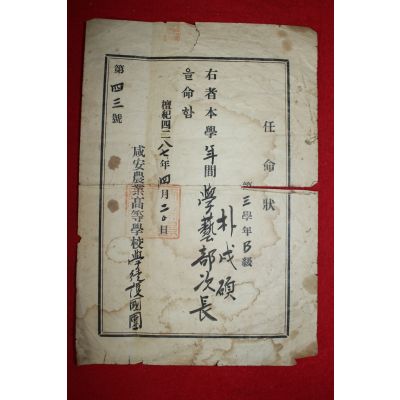 任命狀
第三學年B級
朴成碩
右者本學年間學藝部次長
을命함
檀紀四二八七年四月二〇日
咸安農業高等學校學徒護國團
第四三號